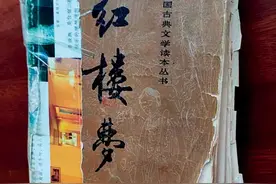 国古典文学读本丛书
红楼梦